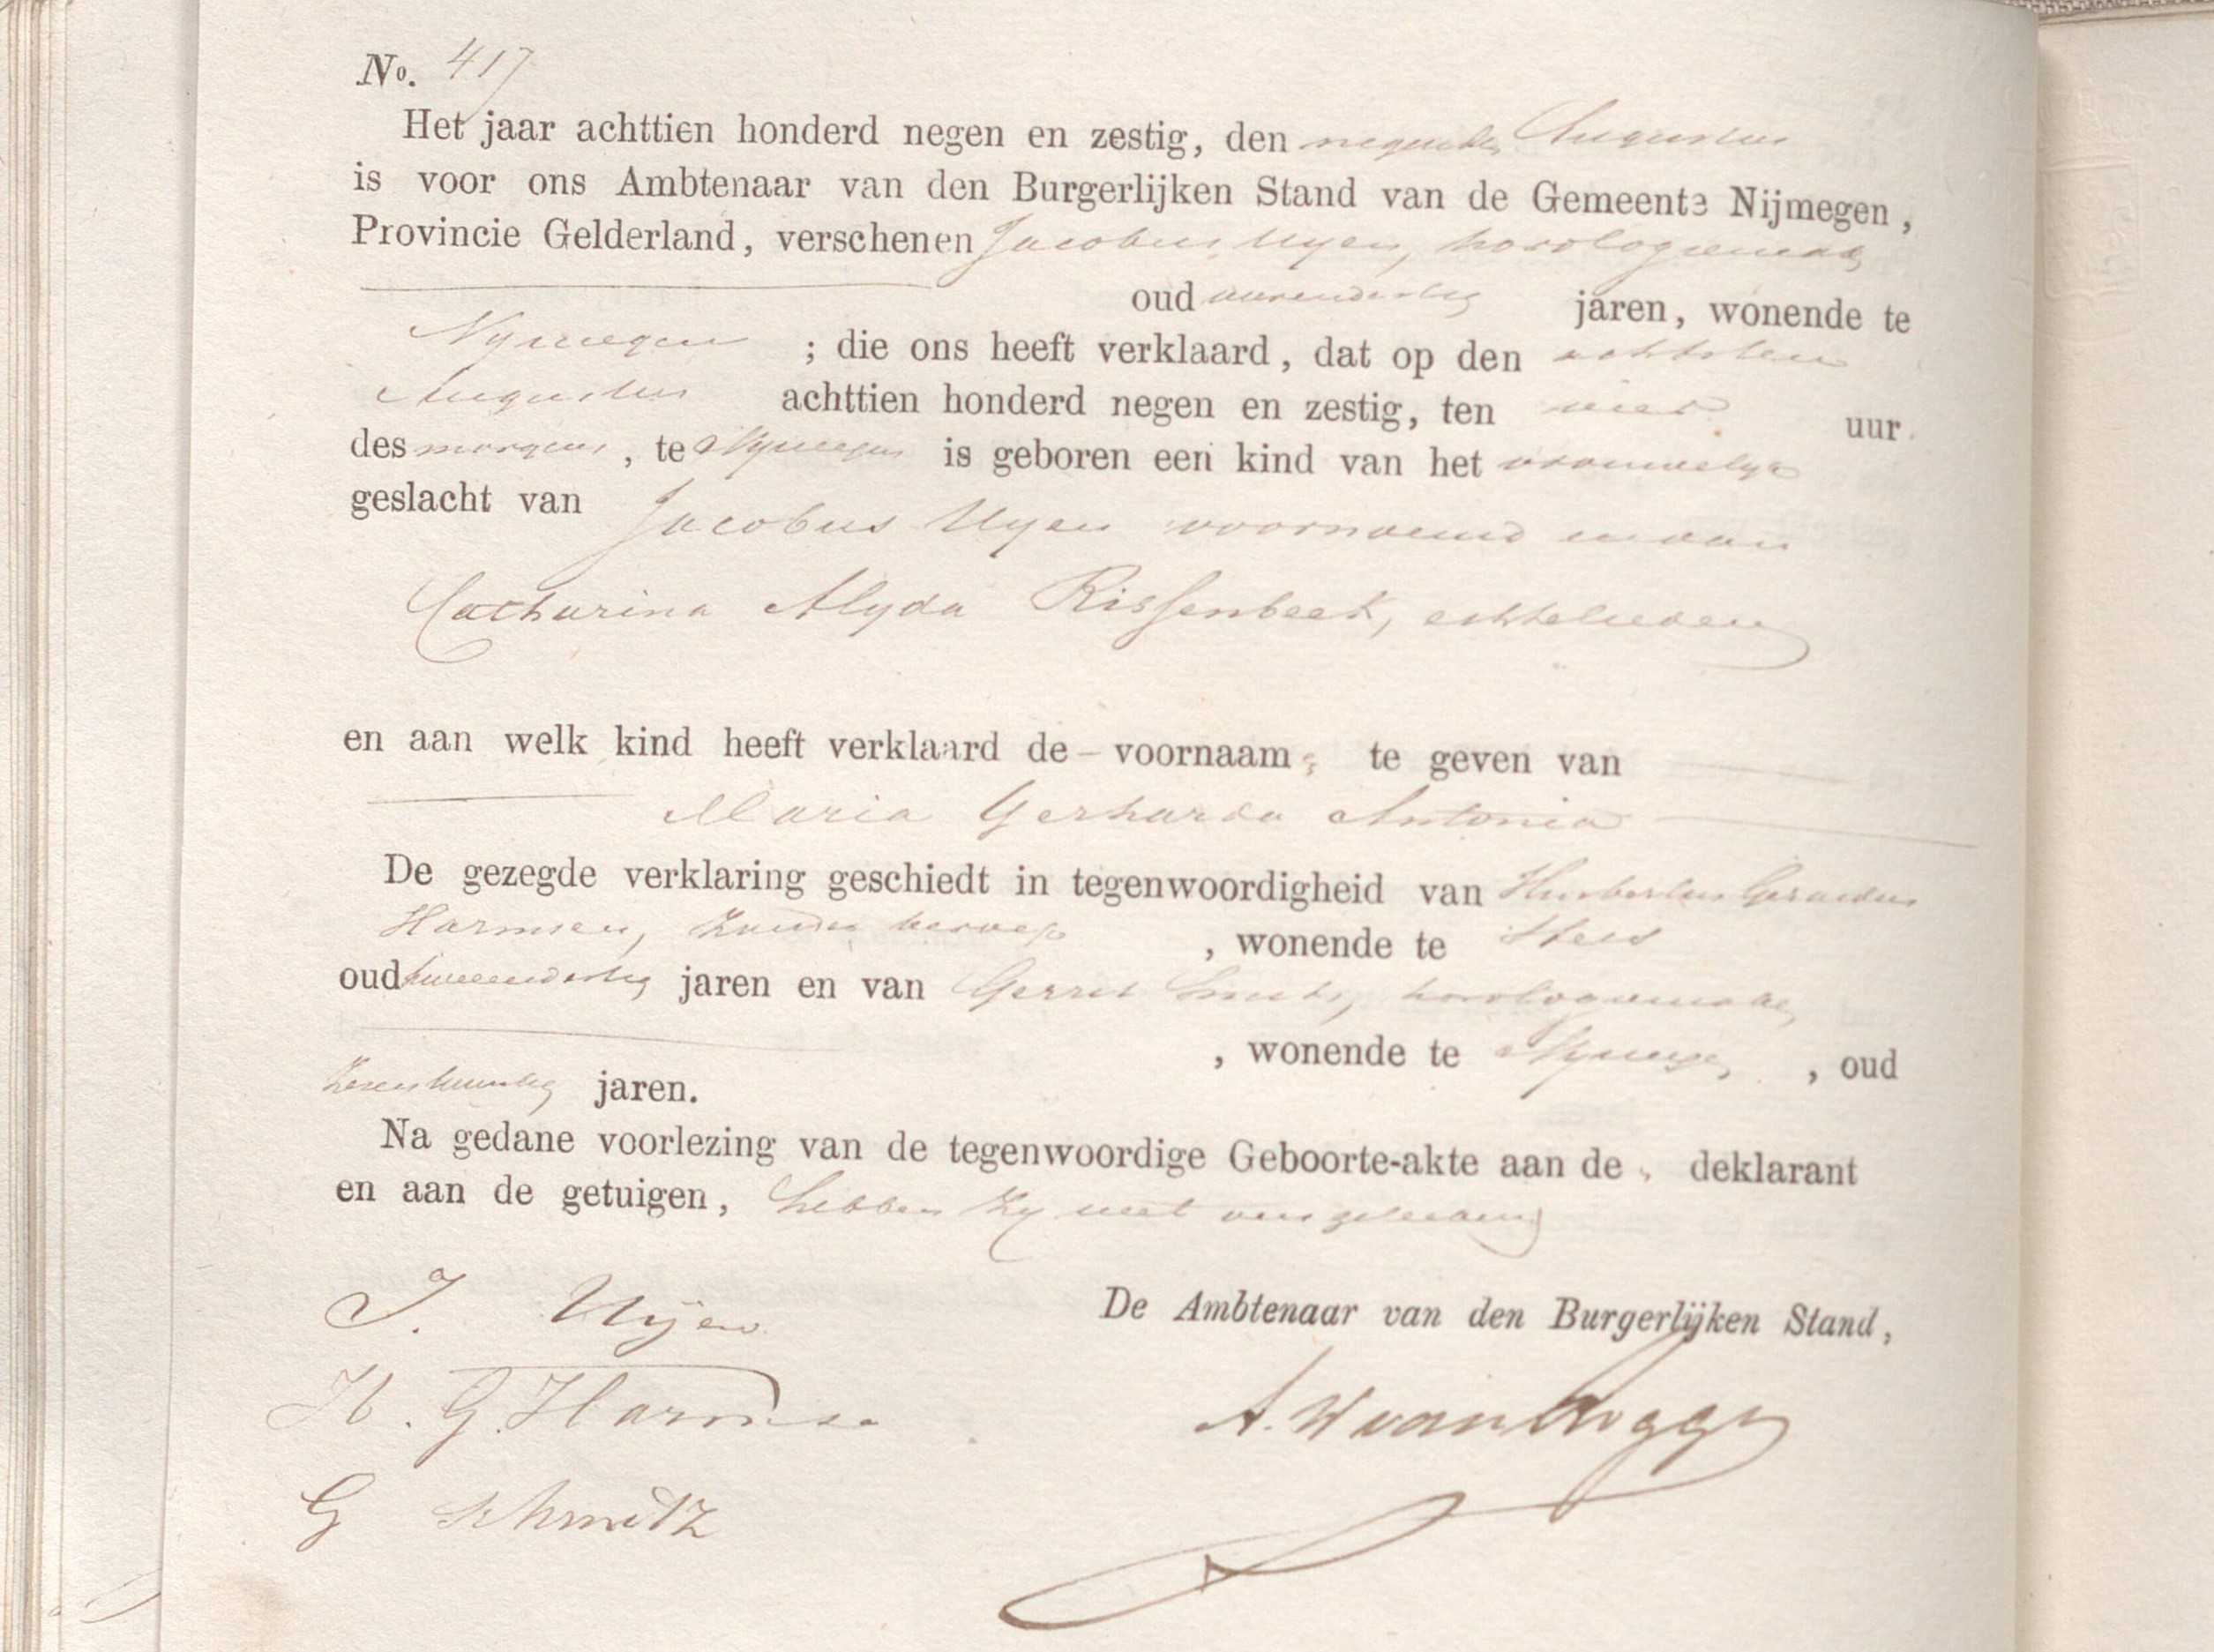 No. 417
Het jaar achttien honderd negen en zestig, den negenden Augustus
is voor ons Ambtenaar van den Burgerlijken Stand van de Gemeente Nijmegen,
Provincie Gelderland, verschenen Jacobus Uyen, horologiemak
oud jaren, wonende te
Nymegen ; die ons heeft verklaard, dat op den achtsten
Augustus achttien honderd negen en zestig, ten vier uur
des morgens, te Nymegen is geboren een kind van het vrouwelyk
geslacht van Jacobus Uyen voornoemd en van
Catharina Alyda Rissenbeek, echtelieden
en aan welk kind heeft verklaard de – voornaam, te geven van
Maria Gerharda Antonia
De gezegde verklaring geschiedt in tegenwoordigheid van Huibertus Gerardus
Harmsen, zonder beroep, wonende te Hees
oud tweeendertig jaren en van Gerrit Smits, horologiemaker,
, wonende te Nymegen, oud
zevenentwintig jaren.
Na gedane voorlezing van de tegenwoordige Geboorte-akte aan de deklarant
en aan de getuigen, hebben zy met ons geteekend
De Ambtenaar van den Burgerlijken Stand,
J. Uÿen
H. G. Harmsen
G Schmitz